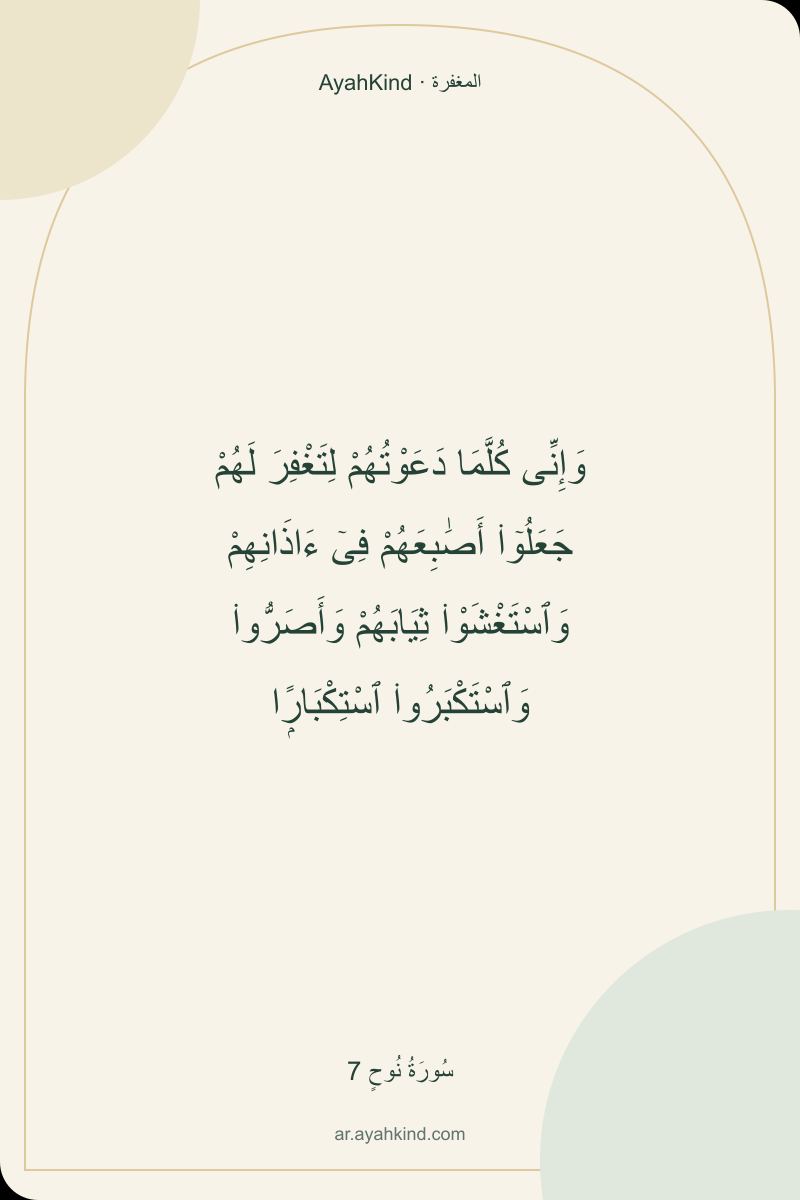 المغفرة · AyahKind
وَإِنِّى كُلَّمَا دَعَوْتُهُمْ لِتَغْفِرَ لَهُمْ
جَعَلُوٓا۟ أَصَـٰبِعَهُمْ فِىٓ ءَاذَانِهِمْ
وَٱسْتَغْشَوْا۟ ثِيَابَهُمْ وَأَصَرُّوا۟
وَٱسْتَكْبَرُوا۟ ٱسْتِكْبَارًۭا
سُورَةُ نُوحٍ 7
ar.ayahkind.com